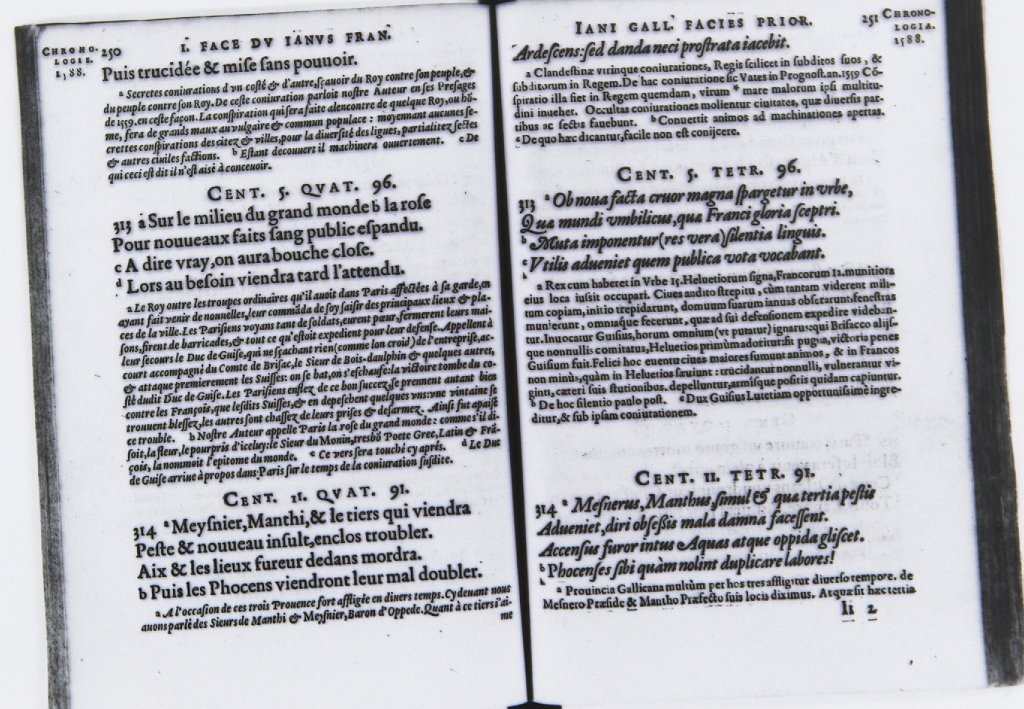 CHRONO-
LOGIE.
1588.
250
I. FACE DV IANVS FRAN.
Puis trucidée & mise sans pouuoir.
a Secretes coniurations d'vn costé & d'autre, sçauoir du Roy contre son peuple, &
du peuple contre son Roy. De ceste coniuration parloit nostre Auteur en ses Presages
de 1559. en ceste façon. La conspiration qui sera faite alencontre de quelque Roy, ou hõ-
me, fera de grands maux au vulgaire & commun populace: moyennant aucunes se-
crettes conspirations des citez & villes, pour la diuersité des ligues, partialitez sectes
& autres ciuiles factions. b Estant decouuert il machinera ouuertement. c De
qui ceci est dit il n'est aisé à conceuoir.
CENT. 5. QVAT. 96.
313 a Sur le milieu du grand monde b la rose
Pour nouueaux faits sang public espandu.
c A dire vray, on aura bouche close.
d Lors au besoin viendra tard l'attendu.
a Le Roy outre les troupes ordinaires qu'il auoit dans Paris affectées à sa garde, en
ayant fait venir de nouuelles, leur commãda de soy saisir des principaux lieux & pla-
ces de la ville. Les Parisiens voyans tant de soldats, eurent pœur, fermerent leurs mai-
sons, firent de barricades, & tout ce qu'estoit expedient pour leur defense. Appellent à
leur secours le Duc de Guise, qui ne sçachant rien (comme lon croid) de l'entreprise, ac-
court accompagné du Comte de Brisac, le Sieur de Bois-daulphin & quelques autres,
& attaque premierement les Suisses: on se bat, on s'eschaufe: la victoire tombe du co-
sté dudit Duc de Guise. Les Parisiens enflez de ce bon succez, se prennent autant bien
contre les François, que lesdits Suisses, & en depeschent quelques vns: vne vintaine se
trouuent blessez, les autres sont chassez de leurs prises & desarmez. Ainsi fut apaisé
ce trouble. b Nostre Auteur appelle Paris la rose du grand monde: comme s'il di-
soit, la fleur, le pourpris d'iceluy: le Sieur du Monin, tresbõ Poete Grec, Latin & Frã-
çois, la nommoit l'epitome du monde. c Ce vers sera touché cy aprés. d Le Duc
de Guise arriue à propos dans Paris sur le temps de la coniuration susdite.
CENT. 11. QVAT. 91.
314 a Meysnier, Manthi, & le tiers qui viendra
Peste & nouueau insult, enclos troubler.
Aix & les lieux fureur dedans mordra.
b Puis les Phocens viendront leur mal doubler.
a A l'occasion de ces trois Prouence fort affligée en diuers temps. Cy deuant nous
auons parlé des Sieurs de Manthi & Meysnier, Baron d'Oppede. Quant à ce tiers i'ai-
me
IANI GALL. FACIES PRIOR.
251
CHRONO-
LOGIA.
1588.
Ardescens: sed danda neci prostrata iacebit.
a Clandestinæ vtrinque coniurationes, Regis scilicet in subditos suos, &
subditorum in Regem. De hac coniuratione sic Vates in Prognost. an. 1559 Cõ-
spiratio illa fiet in Regem quemdam, virum * mare malorum ipsi multitu-
dini inuehet. Occultas coniurationes molientur ciuitates, quæ diuersis par-
tibus ac sectis fauebunt. b Conuertit animos ad machinationes apertas.
c De quo hæc dicantur, facile non est conijcere.
CENT. 5. TETR. 96.
313 a Ob noua facta cruor magna spargetur in vrbe,
Qua mundi vmbilicus, qua Franci gloria sceptri.
b Muta imponentur (res vera) silentia linguis.
c Vtilis adueniet quem publica vota vocabant.
b
a Rex cum haberet in Vrbe 15. Heluetiorum signa, Francorum 12. munitiora
eius loca iussit occupari. Ciues audito strepitu, cùm tantam viderent mili-
tum copiam, initio trepidarunt, domuum suarum ianuas obserarunt, fenestras
munierunt, omniaque fecerunt, quæ ad sui defensionem expedire videban-
tur. Inuocatur Guisius, horum omnium (vt putatur) ignarus: qui Brisacco alijs-
que nonnullis comitatus, Heluetios primùm adoritur: fit pugna, victoria penes
Guisium fuit. Felici hoc euentu ciues maiores sumunt animos, & in Francos
non minùs, quàm in Heluetios sæuiunt: trucidantur nonnulli, vulnerantur vi-
ginti, cæteri suis stationibus depelluntur, armisque positis quidam capiuntur.
b De hoc silentio paulo post. c Dux Guisius Lutetiam opportunissimè ingre-
ditur, & sub ipsam coniurationem.
CENT. 11. TETR. 91.
314 a Mesnerus, Manthus, simul & quæ tertia pestis
Adueniet, diri obsessis mala damna facessent.
Accensus furor intus Aquas atque oppida gliscet.
b Phocenses sibi quàm nolint duplicare labores!
b
a Prouincia Gallicana multùm per hos tres affligitur diuerso tempore. de
Mesnero Præside & Mantho Præfecto suis locis diximus. Atquæ sit hæc tertia
Ii 2